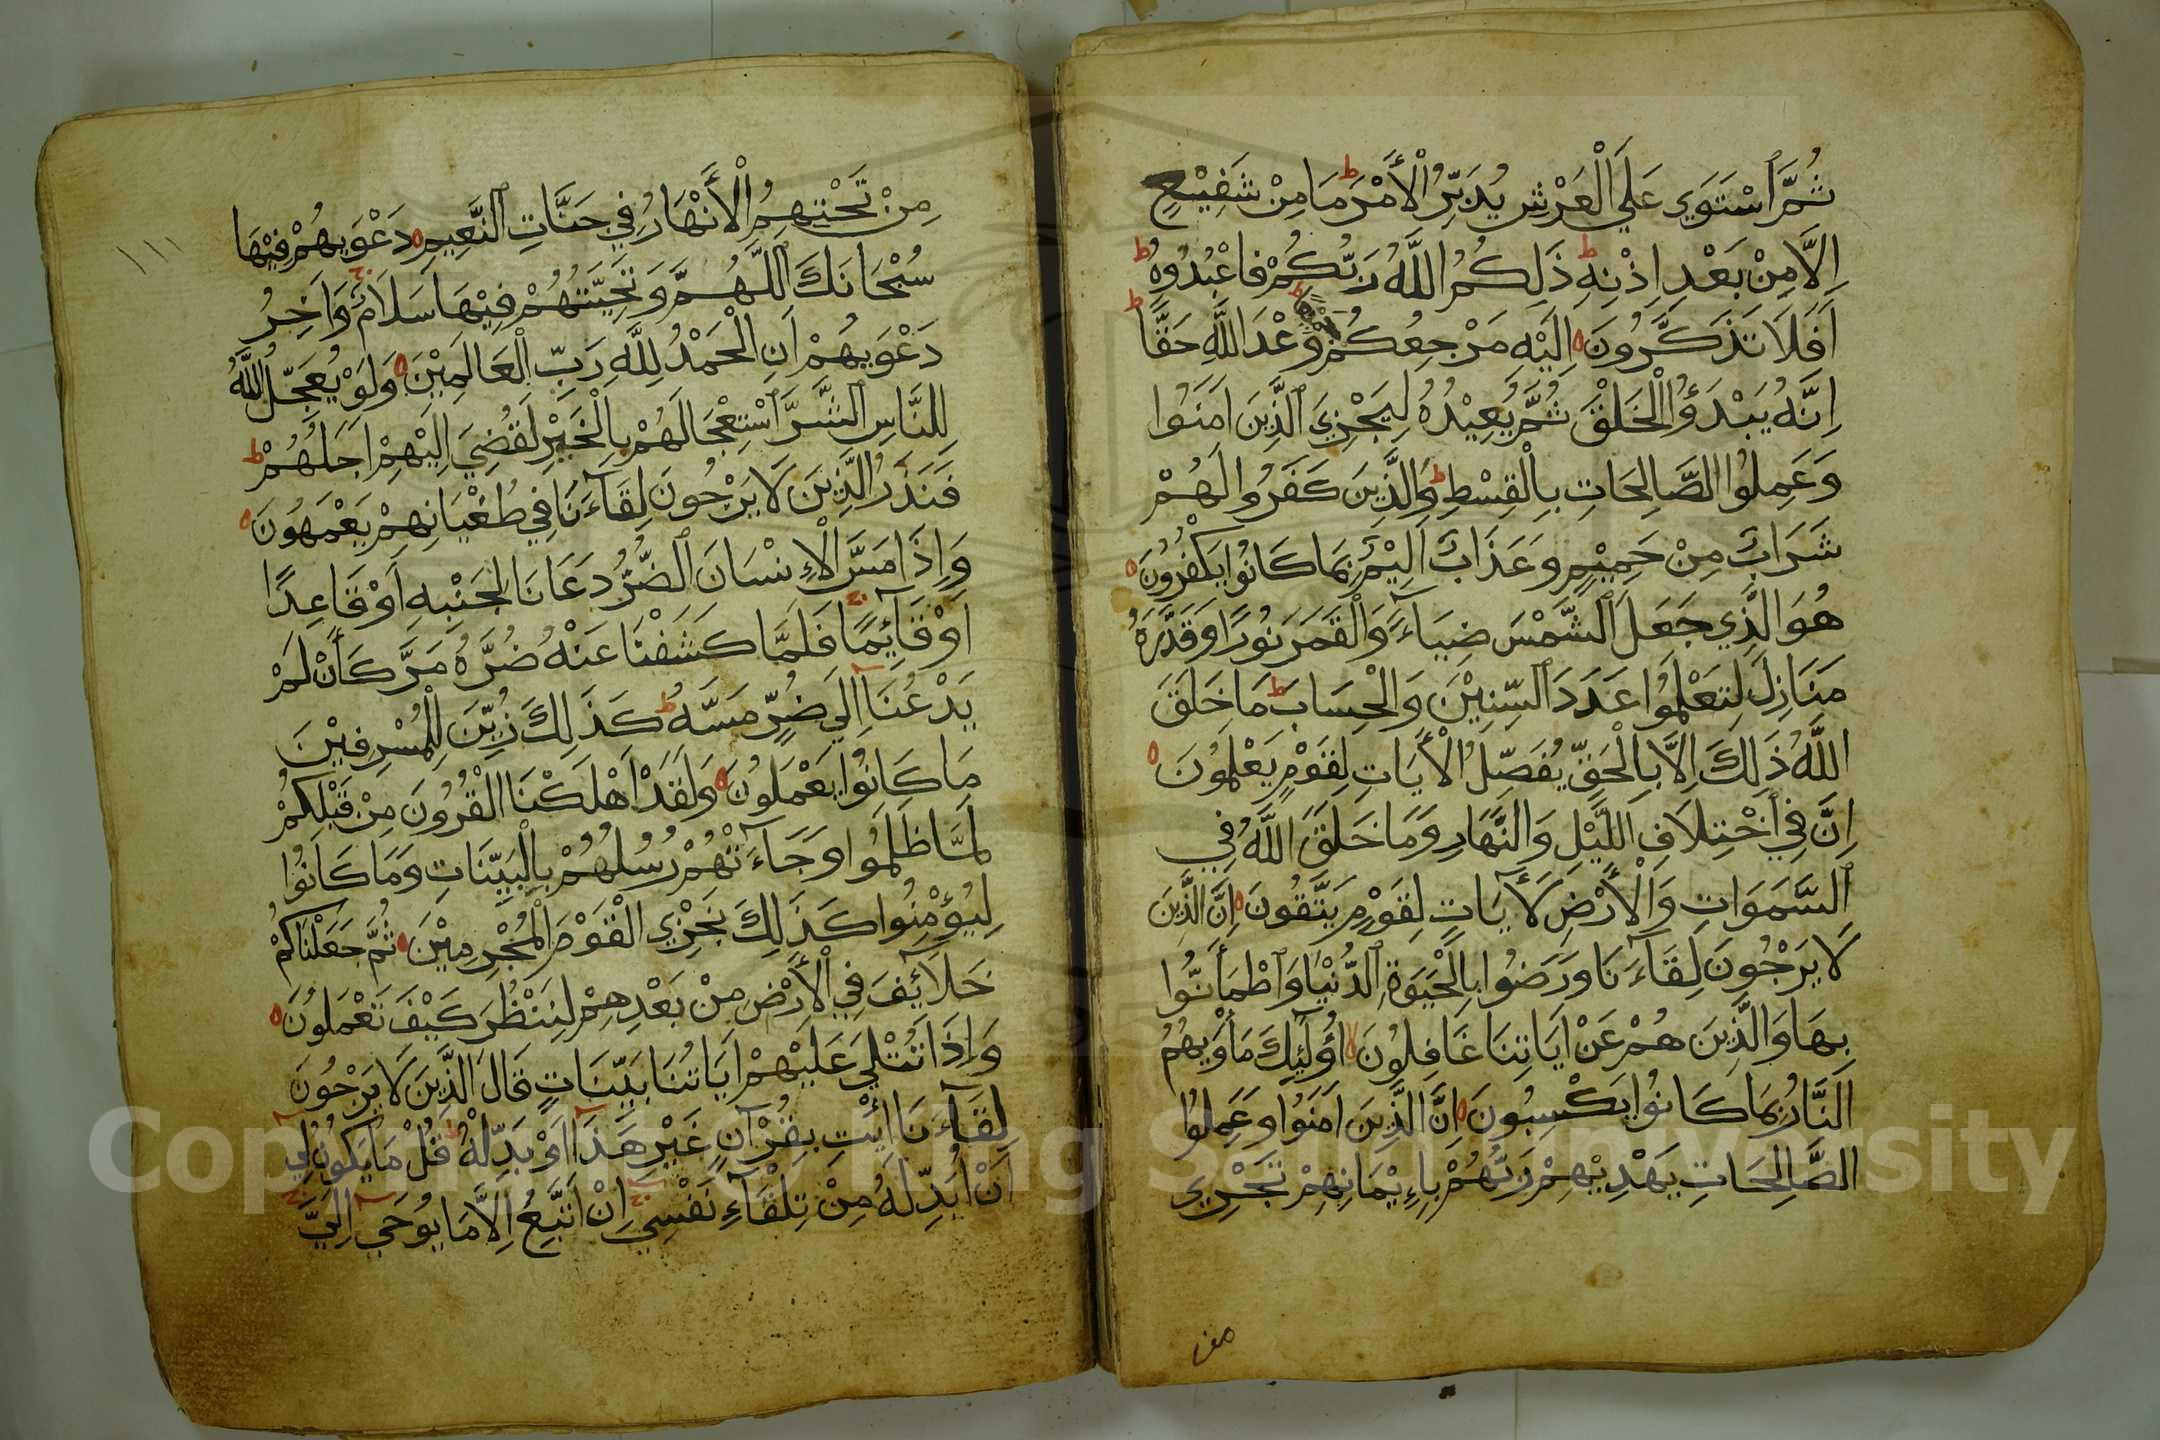 ثُمَّ ٱسْتَوَي عَلَي الْعَرْشِ يُدَبِّرُ الْأَمْرَ ط مَا مِنْ شَفِيْعٍ
اِلَّا مِنْ بَعْدِ اِذْنِهٖ ط ذَلِكُمُ اللَّهُ رَبُّكُمْ فَاعْبُدُوهُ ط
اَفَلَا تَذَكَّرُونَ ه اِلَيْهِ مَرْجِعُكُمْ جَمِيعًا ط وَعْدَ اللَّهِ حَقًّا ط
اِنَّهُ يَبْدَؤُا الْخَلْقَ ثُمَّ يُعِيْدُهُ لِيَجْزِيَ ٱلَّذِينَ اٰمَنُوا
وَعَمِلُوا الصَّالِحَاتِ بِالْقِسْطِ ط وَالَّذِينَ كَفَرُوا لَهُمْ
شَرَابٌ مِنْ حَمِيْمٍ وَعَذَابٌ اَلِيْمٌ بِمَا كَانُوا يَكْفُرُونَ ه
هُوَ الَّذِي جَعَلَ ٱلشَّمْسَ ضِيَاءً وَالْقَمَرَ نُورًا وَقَدَّرَهُ
مَنَازِلَ لِتَعْلَمُوا عَدَدَ ٱلسِّنِيْنَ وَالْحِسَابَ ط مَا خَلَقَ
اللَّهُ ذَلِكَ اِلَّا بِالْحَقِّ يُفَصِّلُ الْأَيَاتِ لِقَوْمٍ يَعْلَمُونَ ه
اِنَّ فِي ٱخْتِلَافِ اللَّيْلِ وَالنَّهَارِ وَمَا خَلَقَ اللَّهُ فِي
ٱلسَّمَوَاتِ وَالْأَرْضِ لَأَيَاتٍ لِقَوْمٍ يَتَّقُونَ ه اِنَّ الَّذِينَ
لَا يَرْجُونَ لِقَآءَنَا وَرَضُوا بِالْحَيَوةِ ٱلدُّنْيَا وَٱطْمَأَنُّوا
بِهَا وَالَّذِينَ هُمْ عَنْ اٰيَاتِنَا غَافِلُونَ لا اُولَٓئِكَ مَأْوٰيهُمُ
النَّارُ بِمَا كَانُوا يَكْسِبُونَ ه اِنَّ الَّذِينَ اٰمَنُوا وَعَمِلُوا
الصَّالِحَاتِ يَهْدِيْهِمْ رَبُّهُمْ بِاِيْمَانِهِمْ تَجْرِي
من
١١١
مِنْ تَحْتِهِمُ الْأَنْهَارُ فِي جَنَّاتِ ٱلنَّعِيمِ ه دَعْوَيهُمْ فِيْهَا
سُبْحَانَكَ ٱللَّهُمَّ وَتَحِيَّتُهُمْ فِيْهَا سَلَامٌ ج وَاٰخِرُ
دَعْوَيهُمْ اَنِ الْحَمْدُ لِلَّهِ رَبِّ الْعَالَمِيْنَ ه وَلَوْ يُعَجِّلُ اللَّهُ
لِلنَّاسِ ٱلشَّرَّ ٱسْتِعْجَالَهُمْ بِالْخَيْرِ لَقُضِيَ اِلَيْهِمْ اَجَلُهُمْ ط
فَنَذَرُ الَّذِينَ لَا يَرْجُونَ لِقَآءَنَا فِي طُغْيَانِهِمْ يَعْمَهُونَ ه
وَاِذَا مَسَّ الْاِنْسَانَ ٱلضُّرُّ دَعَانَا لِجَنْبِهِ اَوْ قَاعِدًا
اَوْ قَآئِمًا ج فَلَمَّا كَشَفْنَا عَنْهُ ضُرَّهُ مَرَّ كَأَنْ لَمْ
يَدْعُنَآ اِلَي ضُرٍّ مَسَّهُ ط كَذَلِكَ زُيِّنَ لِلْمُسْرِفِيْنَ
مَا كَانُوا يَعْمَلُونَ ه وَلَقَدْ اَهْلَكْنَا الْقُرُونَ مِنْ قَبْلِكُمْ
لَمَّا ظَلَمُوا وَجَآءَتْهُمْ رُسُلُهُمْ بِالْبَيِّنَاتِ وَمَا كَانُوا
لِيُؤْمِنُوا كَذَلِكَ نَجْزِي الْقَوْمَ الْمُجْرِمِيْنَ ه ثُمَّ جَعَلْنَاكُمْ
خَلَآئِفَ فِي الْأَرْضِ مِنْ بَعْدِهِمْ لِنَنْظُرَ كَيْفَ تَعْمَلُونَ ه
وَاِذَا تُتْلَي عَلَيْهِمْ اٰيَاتُنَا بَيِّنَاتٍ قَالَ الَّذِينَ لَا يَرْجُونَ
لِقَآءَنَا ائْتِ بِقُرْآنٍ غَيْرِ هَذَآ اَوْ بَدِّلْهُ ط قُلْ مَا يَكُونُ لِي
اَنْ اُبَدِّلَهُ مِنْ تِلْقَآءِ نَفْسِي ج اِنْ اَتَّبِعُ اِلَّا مَا يُوحَي اِلَيَّ ج
Copyright © King Saud University